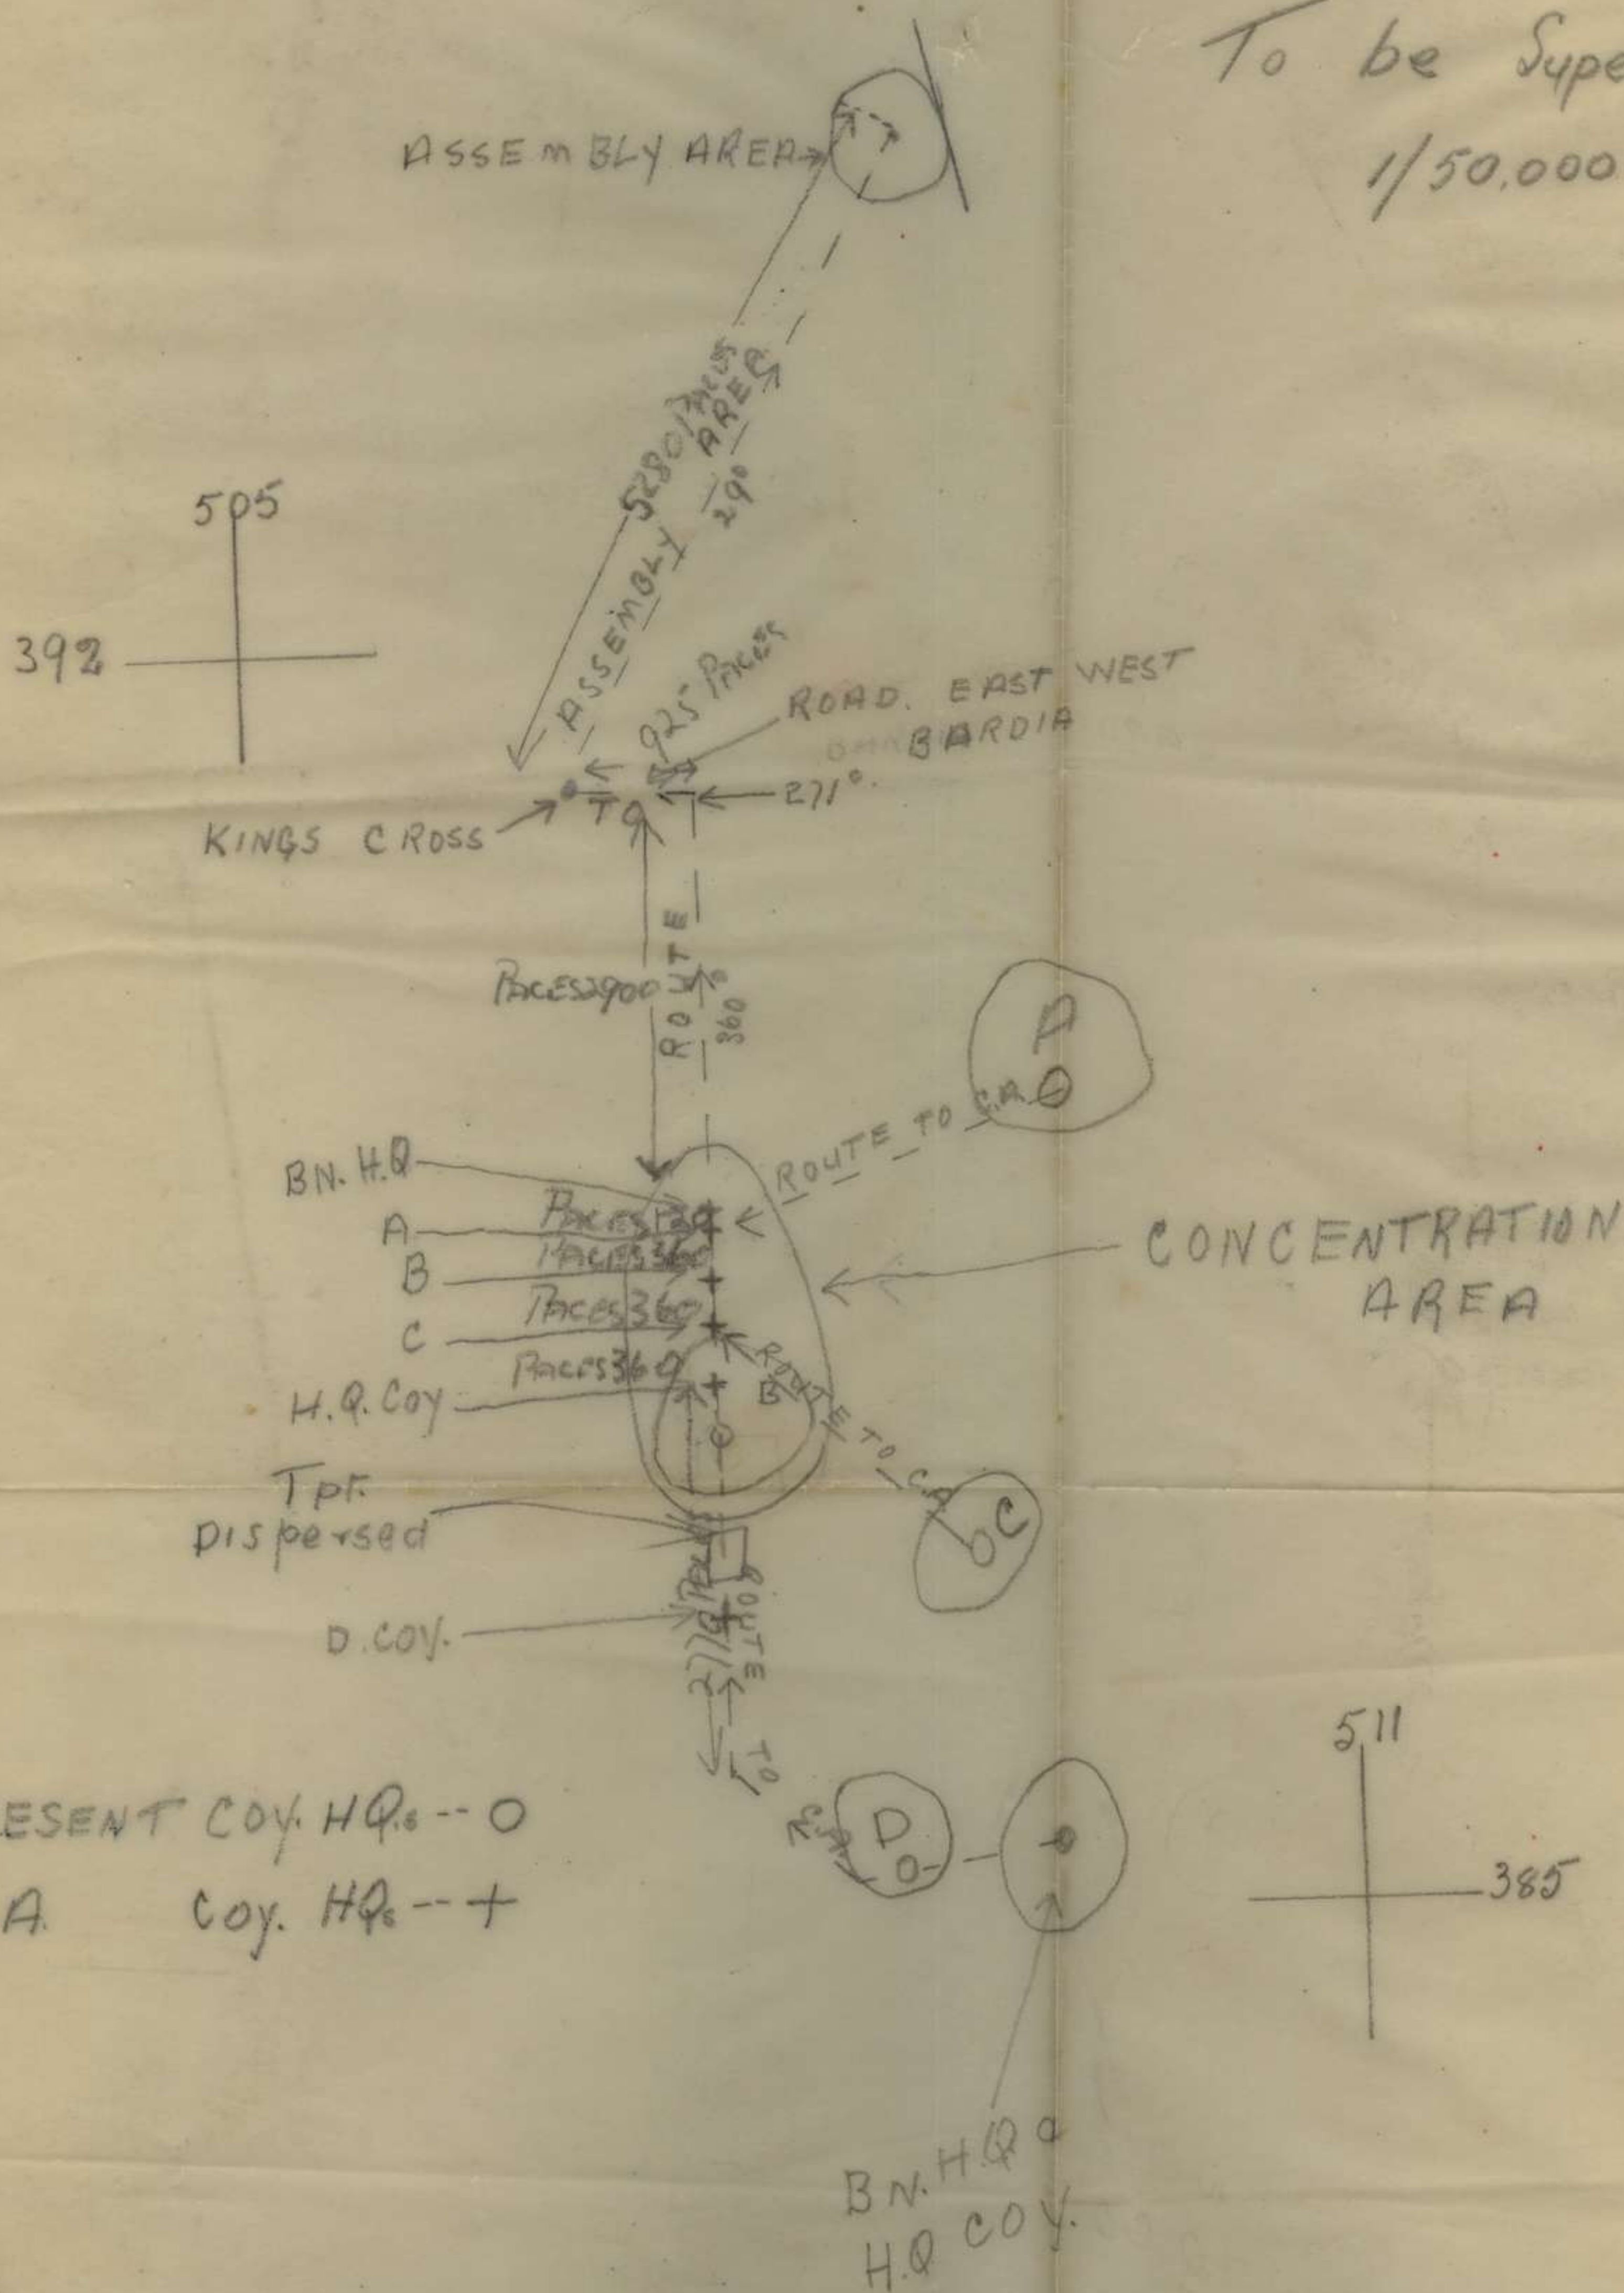 To be Supe
1/50.000
ASSEMBLY AREA
5280 PACES
ASSEMBLY AREA
290
505
392
925 PACES
ROAD. EAST WEST
BARDIA
271°.
KINGS CROSS
TO
ROUTE
PACES 2900
360°
A
ROUTE TO C.A
BN. H.Q
A
PACES
B
PACES 360
C
PACES 360
H.Q. COY
PACES 360
CONCENTRATION
AREA
B
ROUTE TO C.A
C
Tpt.
Dispersed
D. COY.
2770 PACES
ROUTE
TO
C.A
D
511
385
ESENT COY. HQ.s -- O
A. Coy. HQs -- +
BN. H.Q &
H.Q COY.